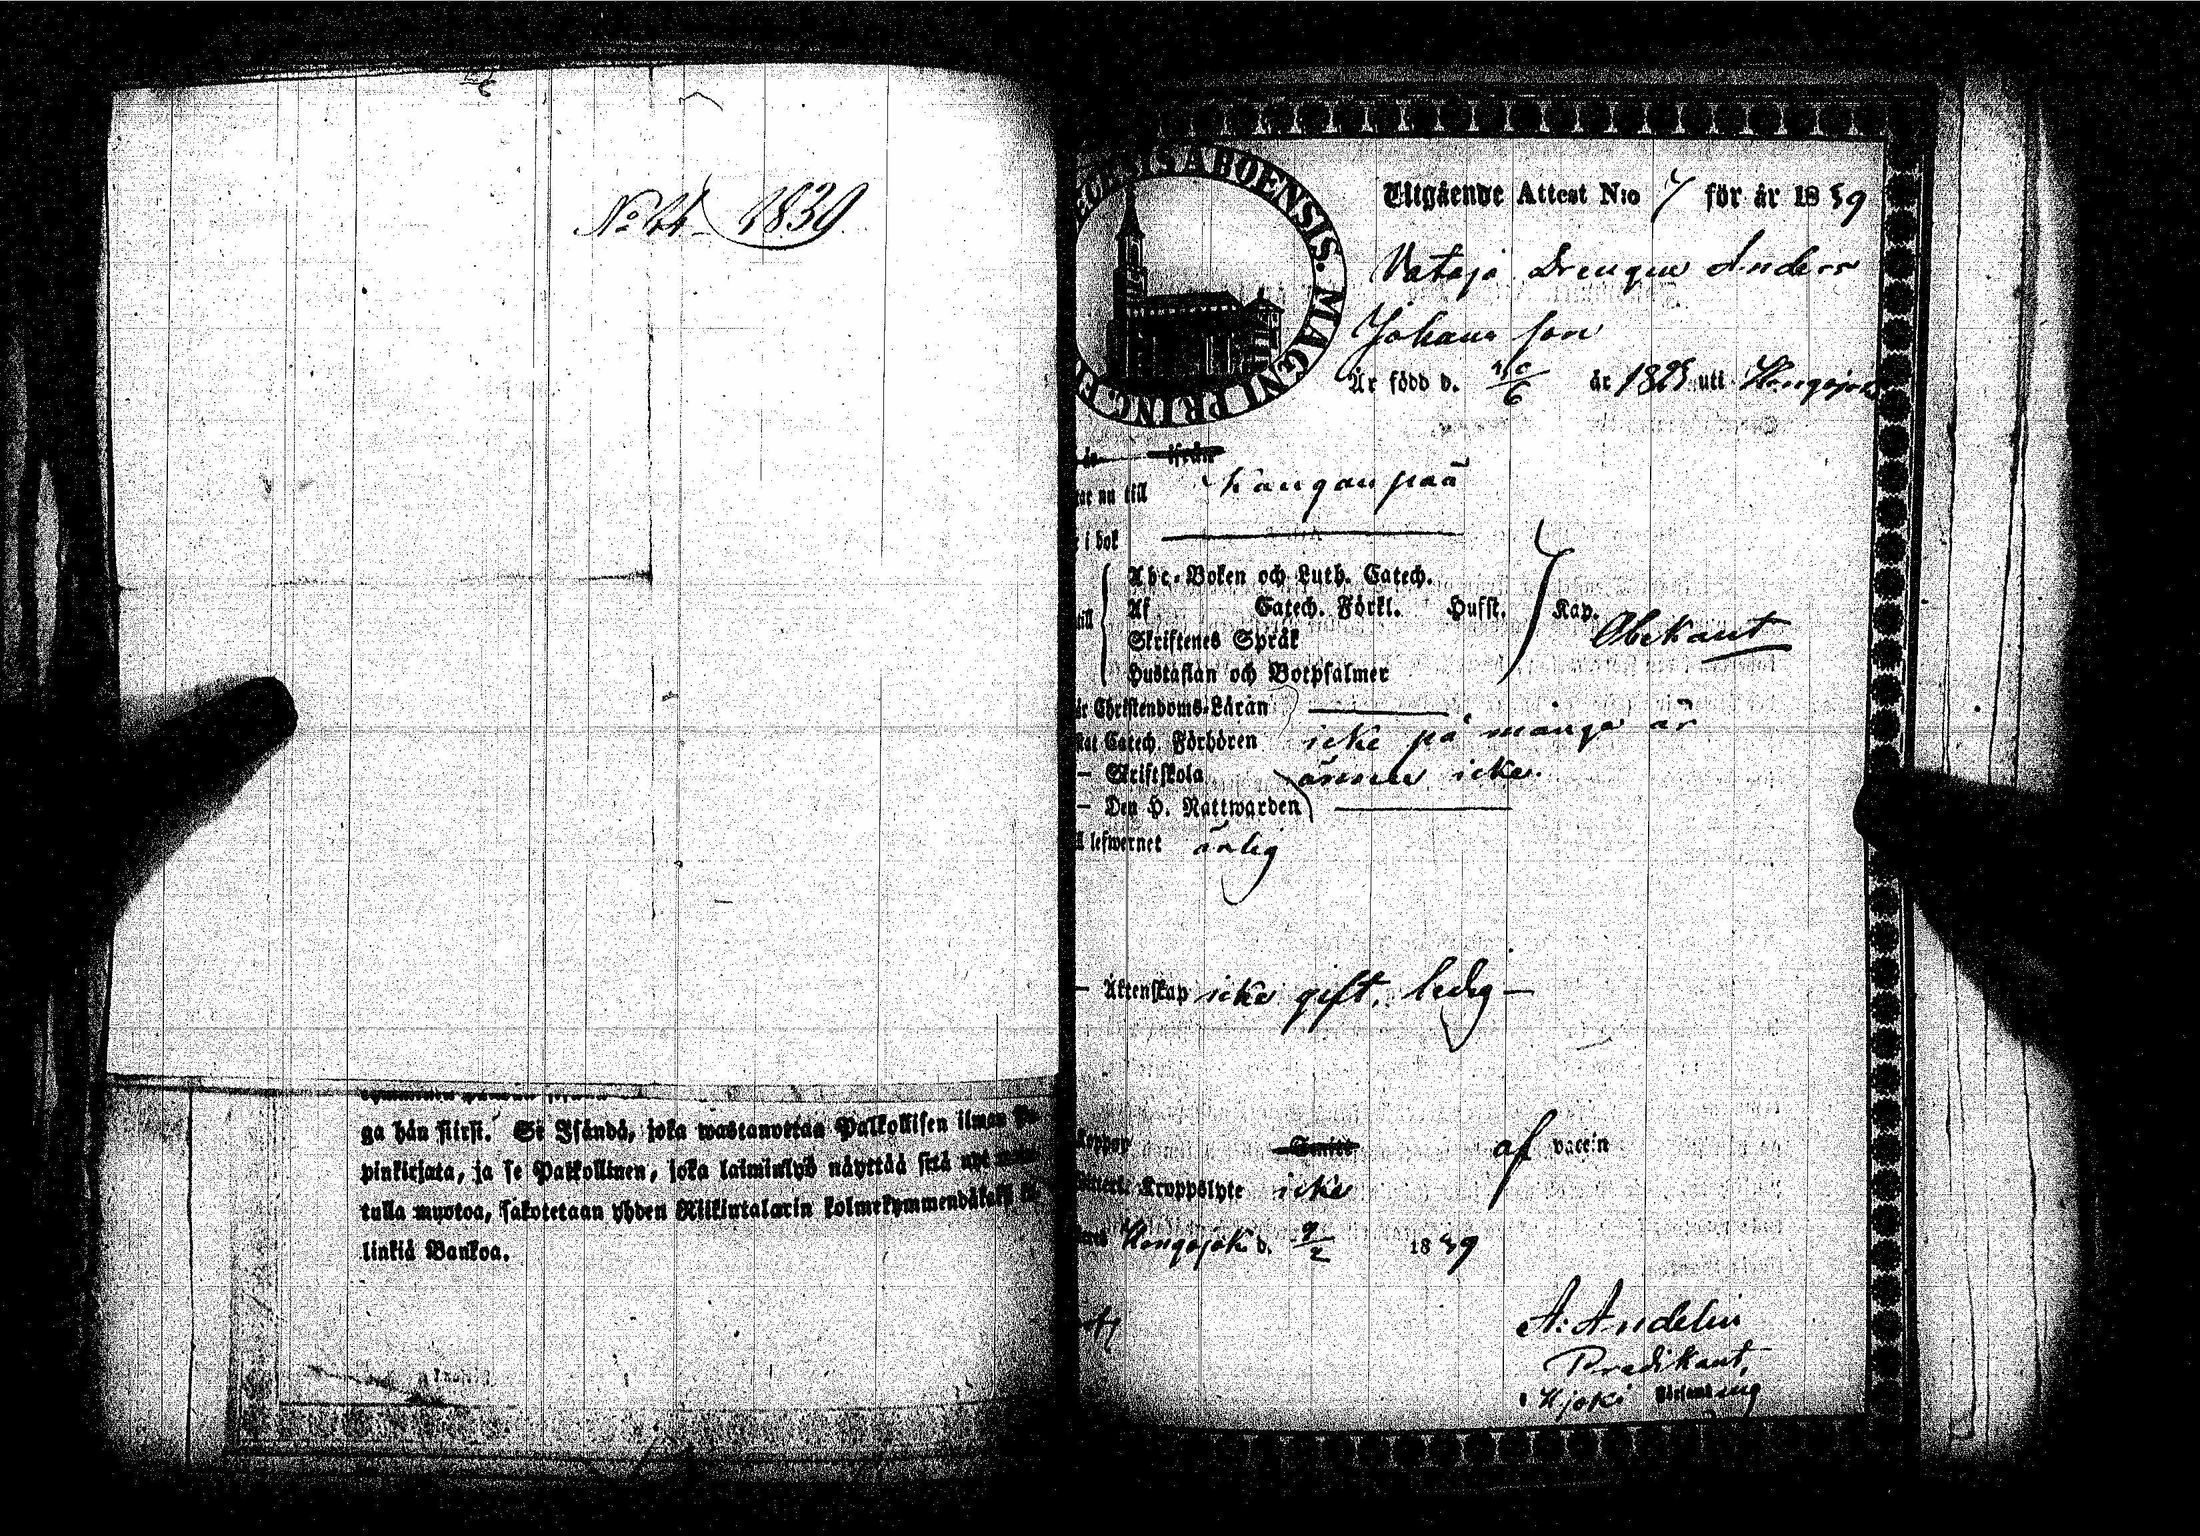 No 44 1839
gå hän siirsi. Se Isändä, joka wastanottaa Palkollisen ilman
pinkirjata, ja se Palkollinen, joka laiminlyö näyttää sitä
tulla myotoa, sakotetaan yhden Riikintalarin kolmekymmendäkaksi
linkiä Bankoa.
ABOENSIS. MAGNI PRINC
Utgående Attest N:o 7 för år 1839
Vataja Drengen Anders
Johans son
Är född d. år 1823 uti Hongojoki
ifrån
nu till Kangan pää
i bok
Abc-Boken och Luth. Catech.
Af Catech. Förkl. Hufst. Kap. Obekant
till
Skriftenes Språk
Hustaflan och Botpsalmer
Christendoms-Läran
Catech. Förhören icke på många år
– Skriftskola ännu icke.
– Den H. Nattwarden
lefwernet ärlig
– Äktenskap icke gift, ledig –
Koppor af vacc:n
Kroppslyte icke
Hongojoki d. 9/2 1839
A: Andelin
Predikant,
Hjoki